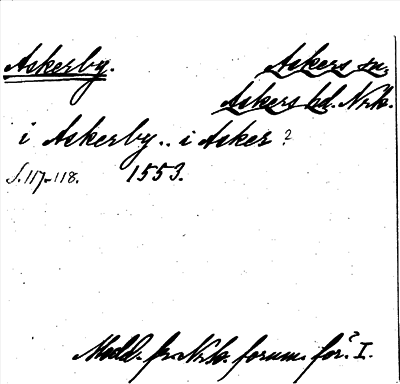 Askerby. Askers sn,
Askers hd. Nrk.
i Askerby.. i Asker ?
S. 117-118. 1553.
Medd. fr. Nrk. fornm. för. I.